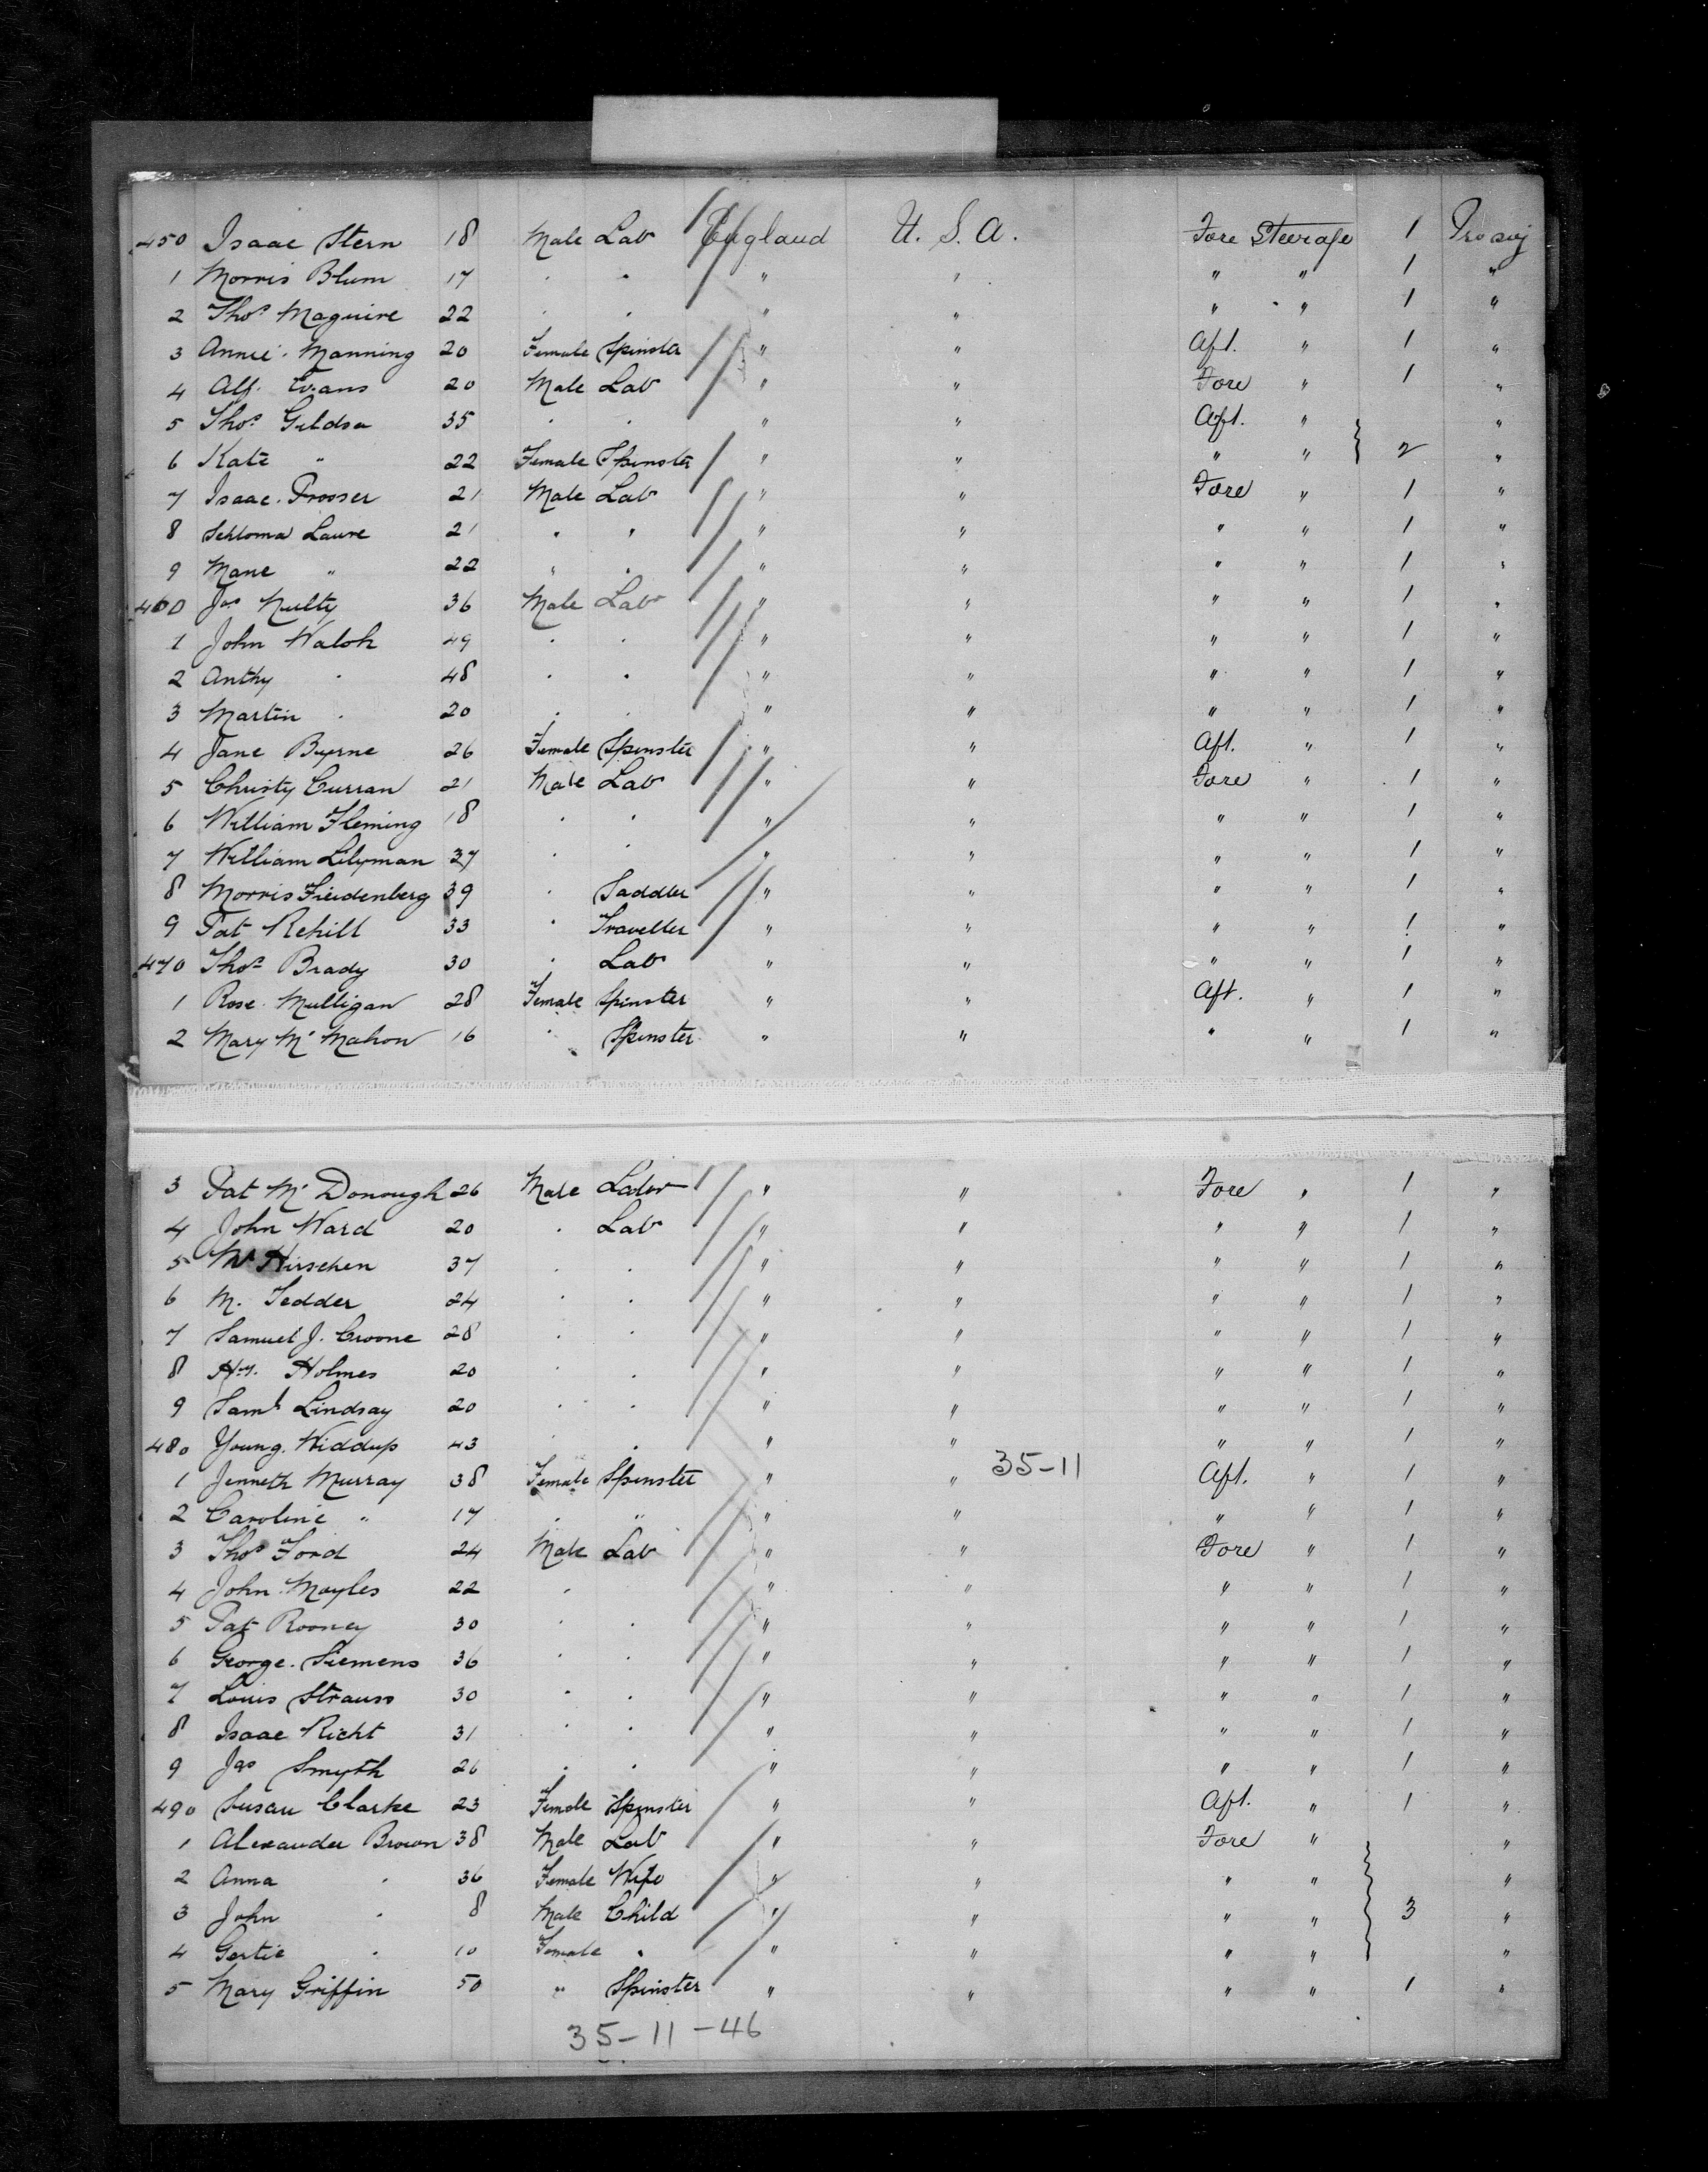 450 Isaac Stern 18 Male Lab England U. S. A. Fore Steerage 1
1 Morris Blum 17 " " " " " " 1 "
2 Thos Maguire 22 " " " " " " 1 "
3 Annie Manning 20 Female Spinster " " Aft. " 1 "
4 Alf. Evans 20 Male Lab " " Fore " 1 "
5 Thos 35 " " " " Aft. " "
6 Kate " 22 Female Spinster " " " " 2 "
7 Isaac Prooser 21 Male Lab " " Fore " 1 "
8 Schloma Laure 21 " " " " " " 1 "
9 Mane " 22 " " " " " " 1 "
460 Jas Nulty 36 Male Lab " " " " 1 "
1 John Walsh 49 " " " " " " 1 "
2 Anthy " 48 " " " " " " 1 "
3 Martin " 20 " " " " " " 1 "
4 Jane Byrne 26 Female Spinster " " Aft. " 1 "
5 Christy Curran 21 Male Lab " " Fore " 1 "
6 William Fleming 18 " " " " " " 1 "
7 William Lilyman 37 " " " " " " 1 "
8 Morris Freidenberg 39 " Saddler " " " " 1 "
9 Pat Rehill 33 " Traveller " " " " 1 "
470 Thos Brady 30 " Lab " " " " 1 "
1 Rose Mulligan 28 Female Spinster " " Aft. " 1 "
2 Mary Mc Mahon 16 " Spinster " " " " 1 "
3 Pat Mc Donough 26 Male Labor " " Fore " 1 "
4 John Ward 20 " Lab " " " " 1 "
5 Hirschen 37 " " " " " " 1 "
6 M. Tedder 24 " " " " " " 1 "
7 Samuel J. Croone 28 " " " " " " 1 "
8 Hy. Holmes 20 " " " " " " 1 "
9 Saml Lindsay 20 " " " " " " 1 "
480 Young Widdup 43 " " " " " " 1 "
1 Jenneth Murray 38 Female Spinster " " 35-11 Aft. " 1 "
2 Caroline " 17 " " " " " " 1 "
3 Thos Ford 24 Male Lab " " Fore " 1 "
4 John Moyles 22 " " " " " 1 "
5 Pat Rooney 30 " " " " " " 1 "
6 George Siemens 36 " " " " " " 1 "
7 Louis Strauss 30 " " " " " " 1 "
8 Isaac Richt 31 " " " " " " 1 "
9 Jas Smyth 26 " " " " " " 1 "
490 Susan Clarke 23 Female Spinster " " Aft. " 1 "
1 Alexander Brown 38 Male Lab " " Fore " "
2 Anna " 36 Female Wife " " " " "
3 John " 8 Male Child " " " " 3 "
4 Gertie " 10 Female " " " " " "
5 Mary Griffin 50 " Spinster " " " " 1 "
35-11-46